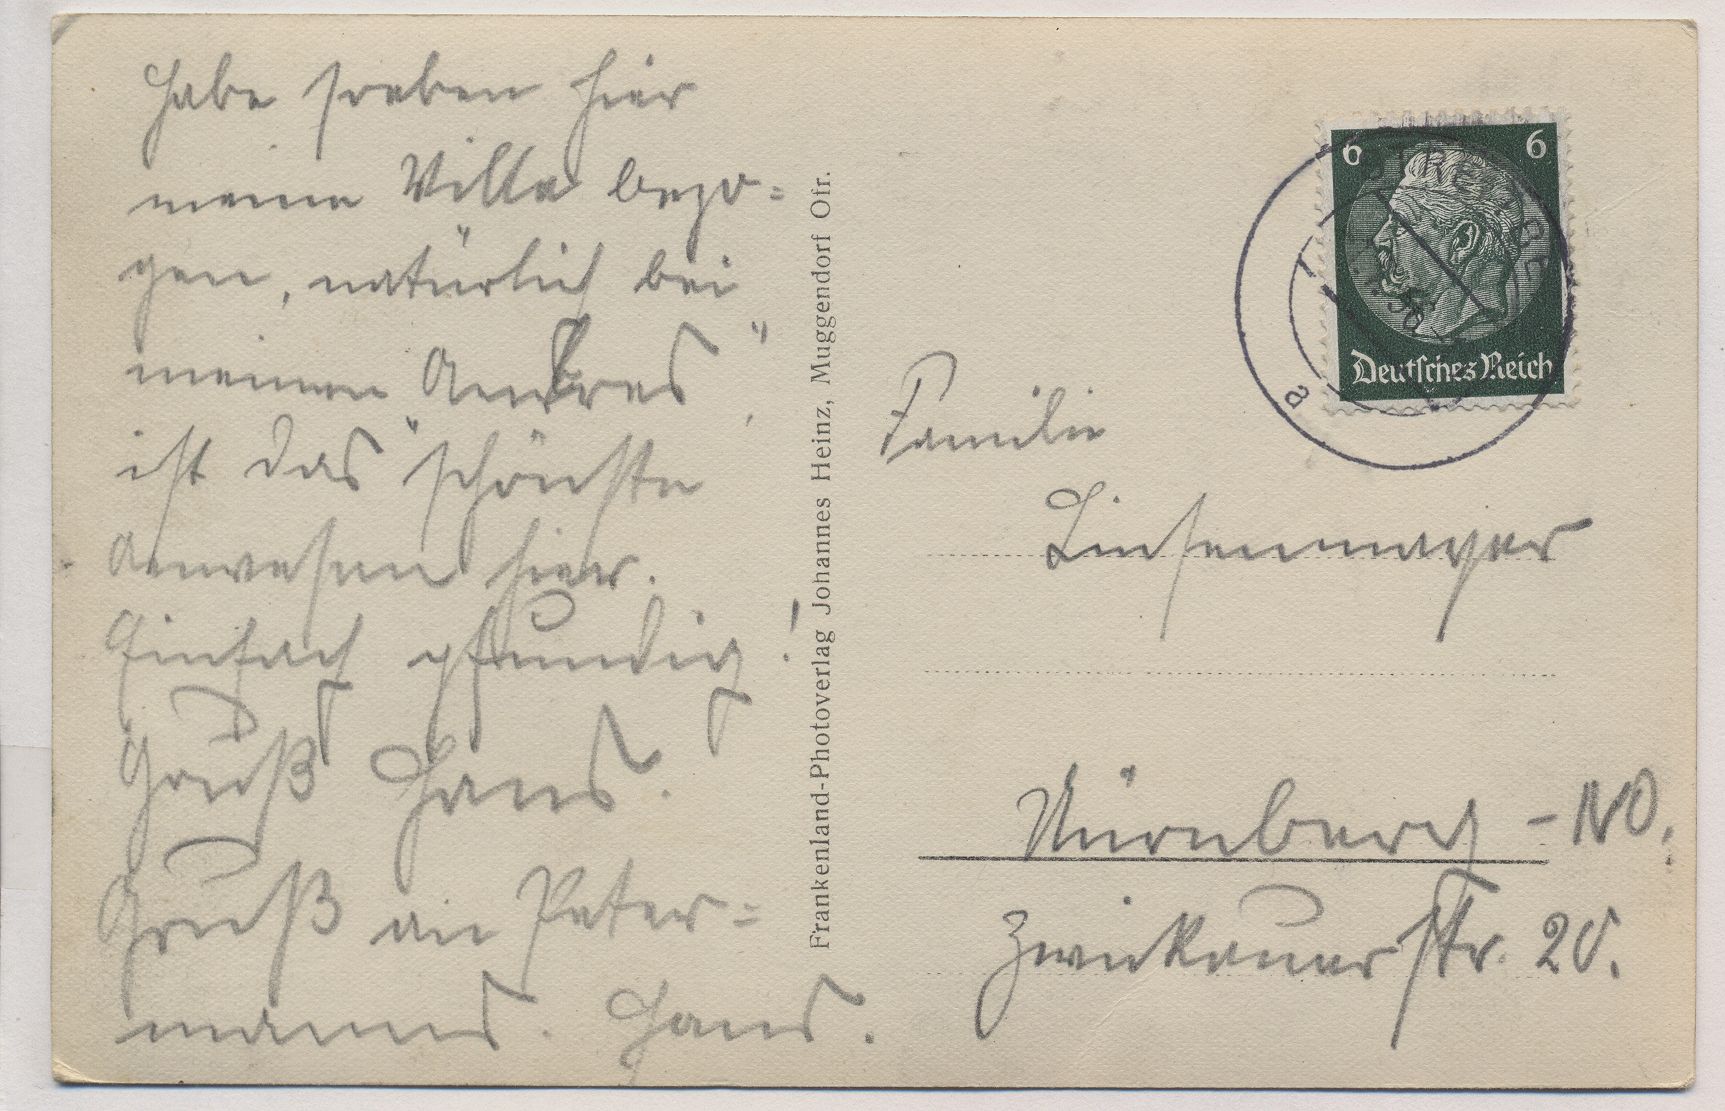 Habe soeben hier
meine Villa bezo=
gen, natürlich bei
meinen Andres"
ist das "schönste
Anwesen hier.
Einfach pfundig!
Gruß Hans.
Gruß an Peter=
manns. Hans.
Frankenland-Photoverlag Johannes Heinz, Muggendorf Ofr.
6 6
Deutsches Reich
STREITBE
a
Familie
Linsenmayer
Nürnberg - NO.
Zwickauerstr. 20.